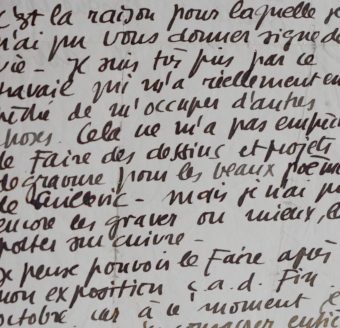 C'est la raison pour laquelle je
n'ai pu vous donner signe de
vie - Je suis très pris par ce
travail qui m'a réellement em
pêché de m'occuper d'autres
choses. Cela ne m'a pas empêch
de faire des dessins et projets
de gravure pour les beaux poèm
de - mais je n'ai pu
encore les graver ou mieux le
porter sur cuivre -
Je pense pouvoir le Faire après
mon exposition c.a.d. Fin
octobre car à ce moment